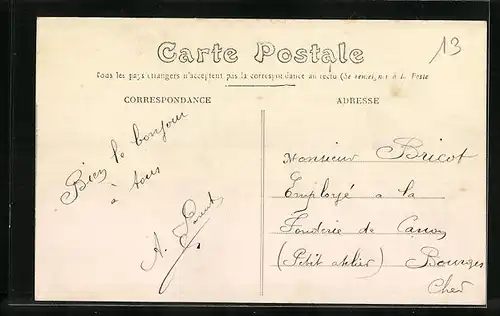 13
Carte Postale
Tous les pays étrangers n'acceptent pas la correspondance au recto (Se renseigner à la Poste
CORRESPONDANCE
ADRESSE
Bien le bonjour
à tous
A.
Monsieur Bricot
Employé a la
Fonderie de Canon
(Petit atelier) Bourges
Cher